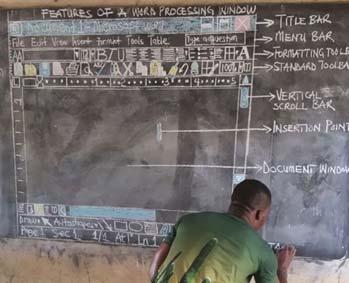 FEATURES OF A WORD PROCESSING WINDOW
Document 1 - Microsoft Word
TITLE BAR
File Edit View Insert Format Tools Table Type a question
MENU BAR
B I U A
FORMATTING TOOLB
100%
STANDARD TOOLBA
VERTICAL SCROLL BAR
INSERTION POINT
DOCUMENT WINDOW
Draw Autoshapes
Page 1 Sec 1 1/1 At 1" Ln
STA